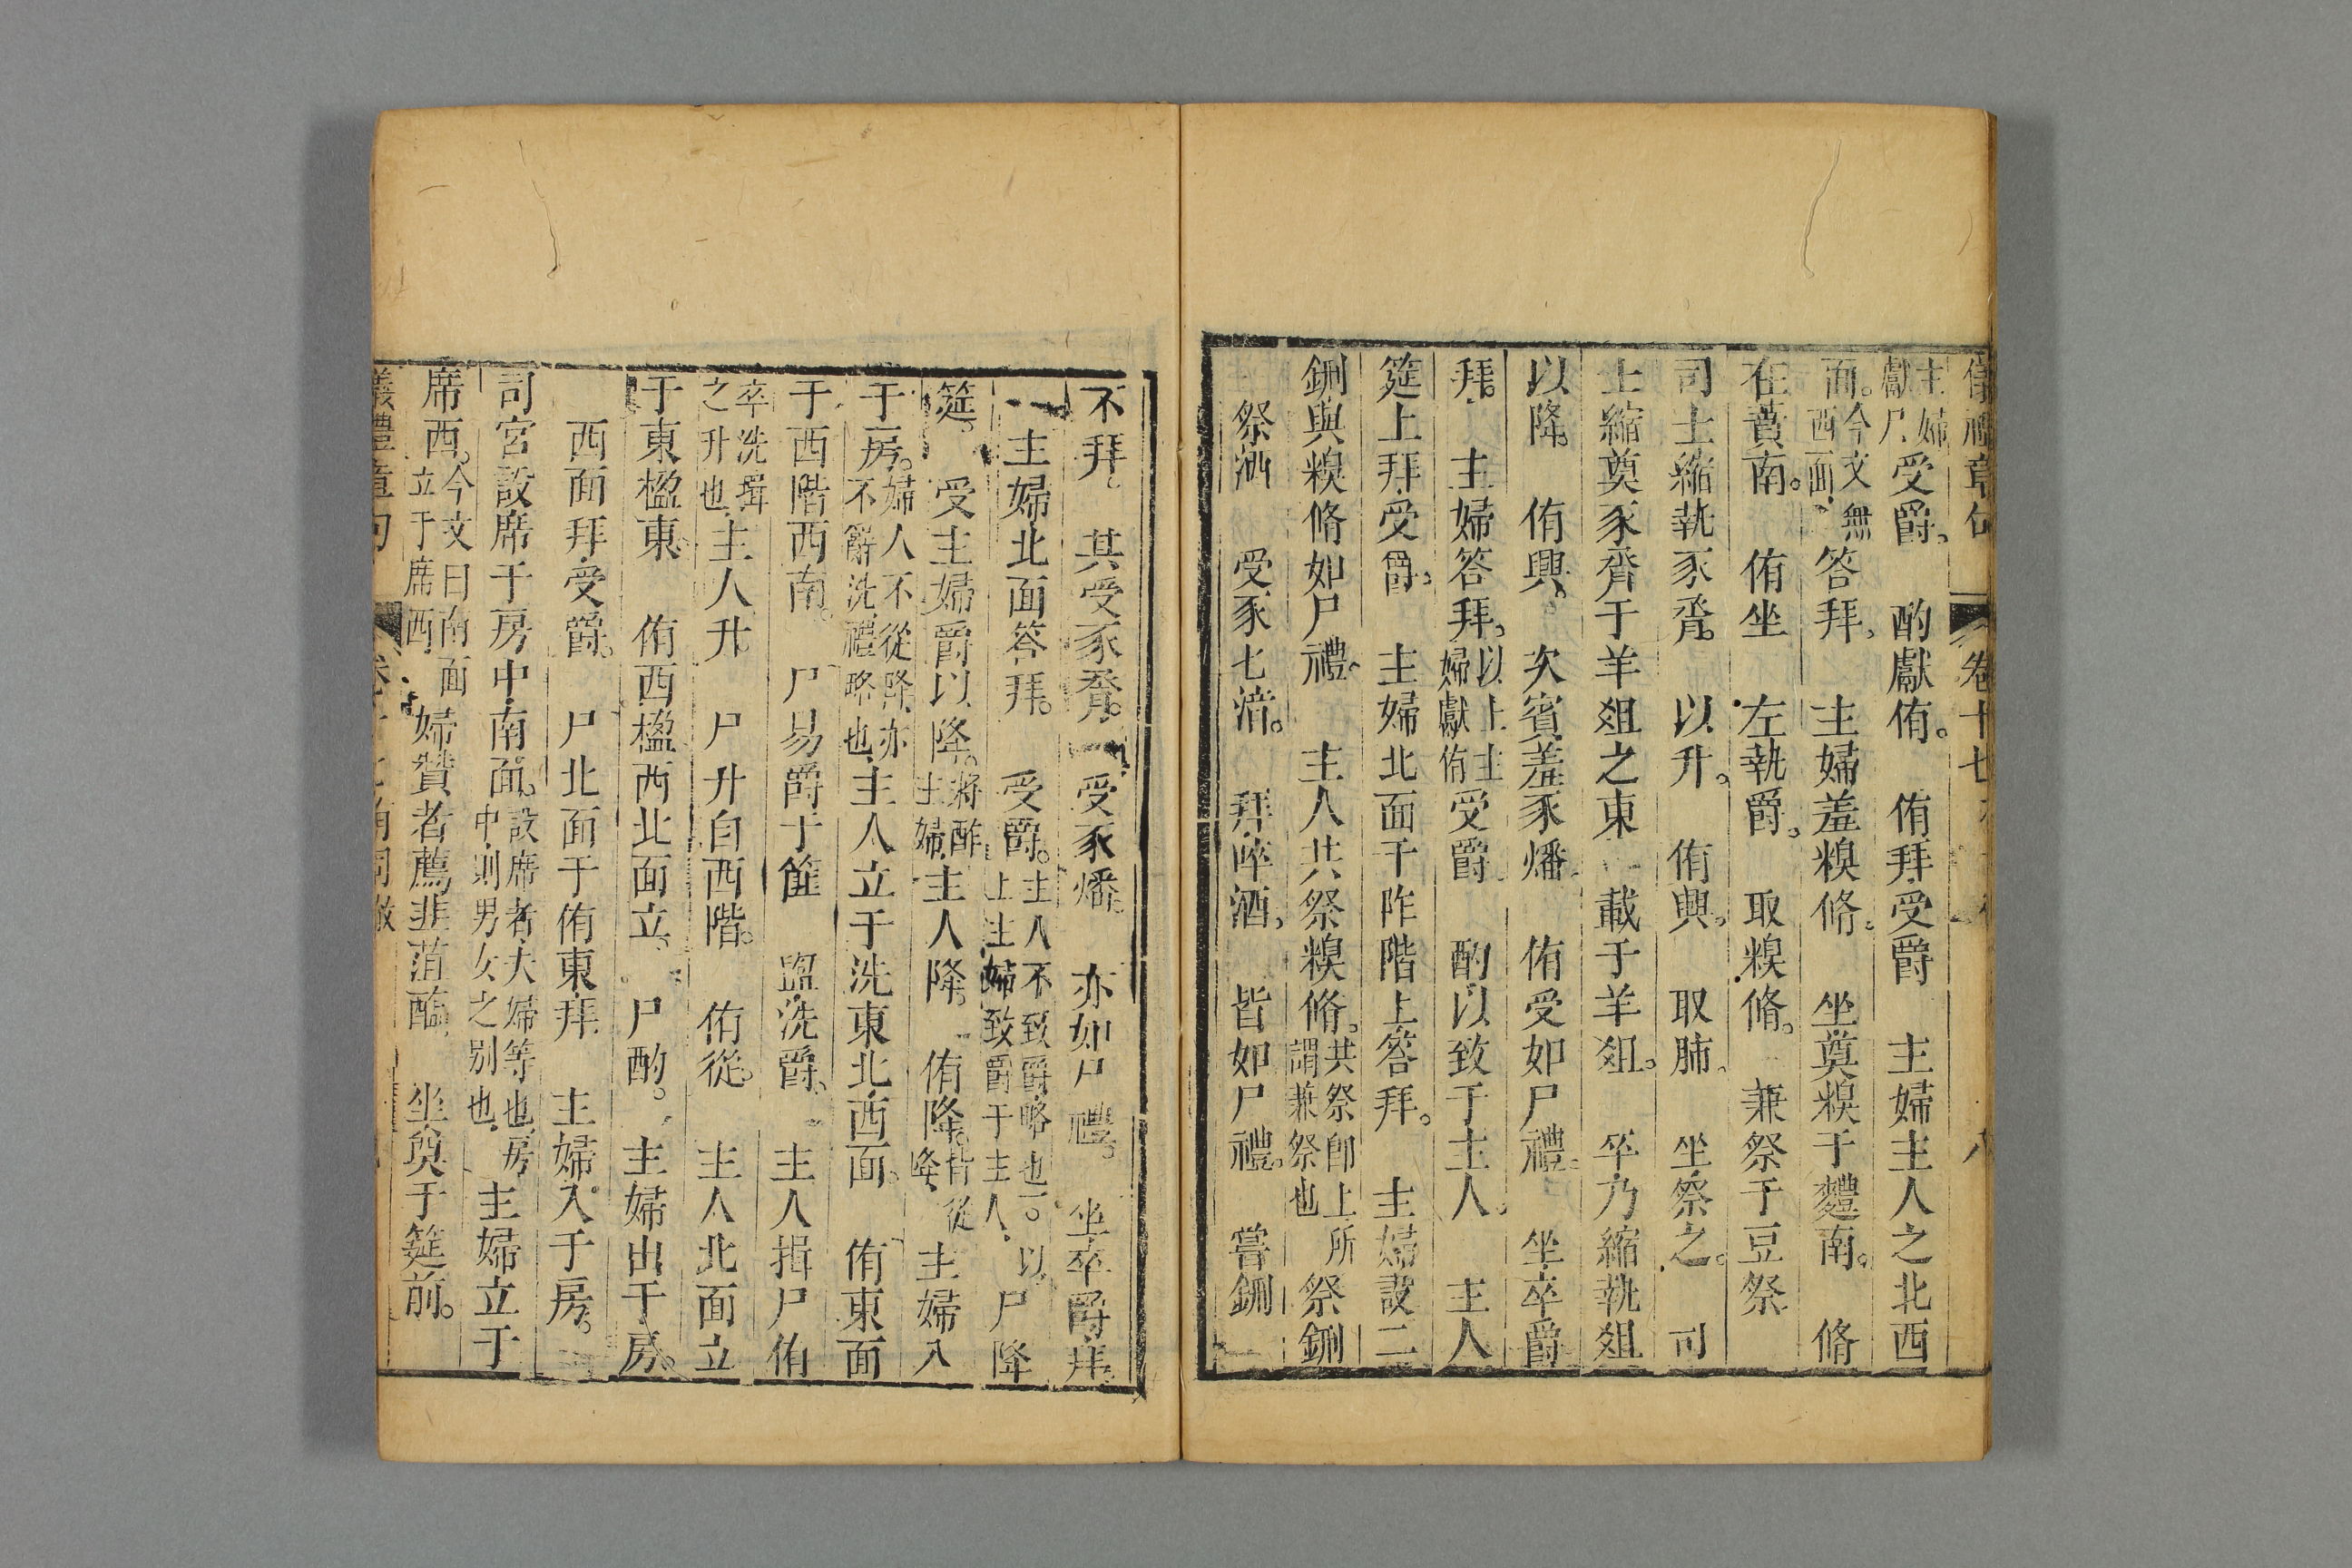 儀禮章句 卷十七
主婦獻尸受爵 酌獻侑 侑拜受爵 主婦主人之北西
面今文無西面 答拜 主婦羞糗脩 坐奠糗于麷南 脩
在蕡南 侑坐 左執爵 取糗脩 兼祭于豆祭
司士縮執豕脀 以升 侑興 取肺 坐祭之 司
士縮奠豕脀于羊俎之東 載于羊俎 卒乃縮執俎
以降 侑興 次賓羞豕燔 侑受如尸禮 坐卒爵
拜 主婦答拜以上主婦獻侑受爵 酌以致于主人 主人
筵上拜受爵 主婦北面于阼階上答拜 主婦設二
鉶與糗脩如尸禮 主人共祭糗脩共祭卽上所謂兼祭也 祭鉶
祭酒 受豕匕湆 拜啐酒 皆如尸禮 嘗鉶
不拜 其受豕脀 受豕燔 亦如尸禮 坐卒爵拜
主婦北面答拜 受爵主人不致爵略也以上主婦致爵于主人 尸降
筵 受主婦爵以降將酢主婦 主人降 侑降皆從降 主婦入
于房婦人不從降亦不辭洗禮略也 主人立于洗東北西面 侑東面
于西階西南 尸易爵于篚 盥洗爵 主人揖尸侑
卒洗揖之升也 主人升 尸升自西階 侑從 主人北面立
于東楹東 侑西楹西北面立 尸酌 主婦出于房
西面拜受爵 尸北面于侑東拜 主婦入于房
司宮設席于房中南面設席者大夫婦等也房中則男女之别也 主婦立于
席西今文曰南面立于席西 婦贊者薦韭菹醢 坐奠于筵前
儀禮章句